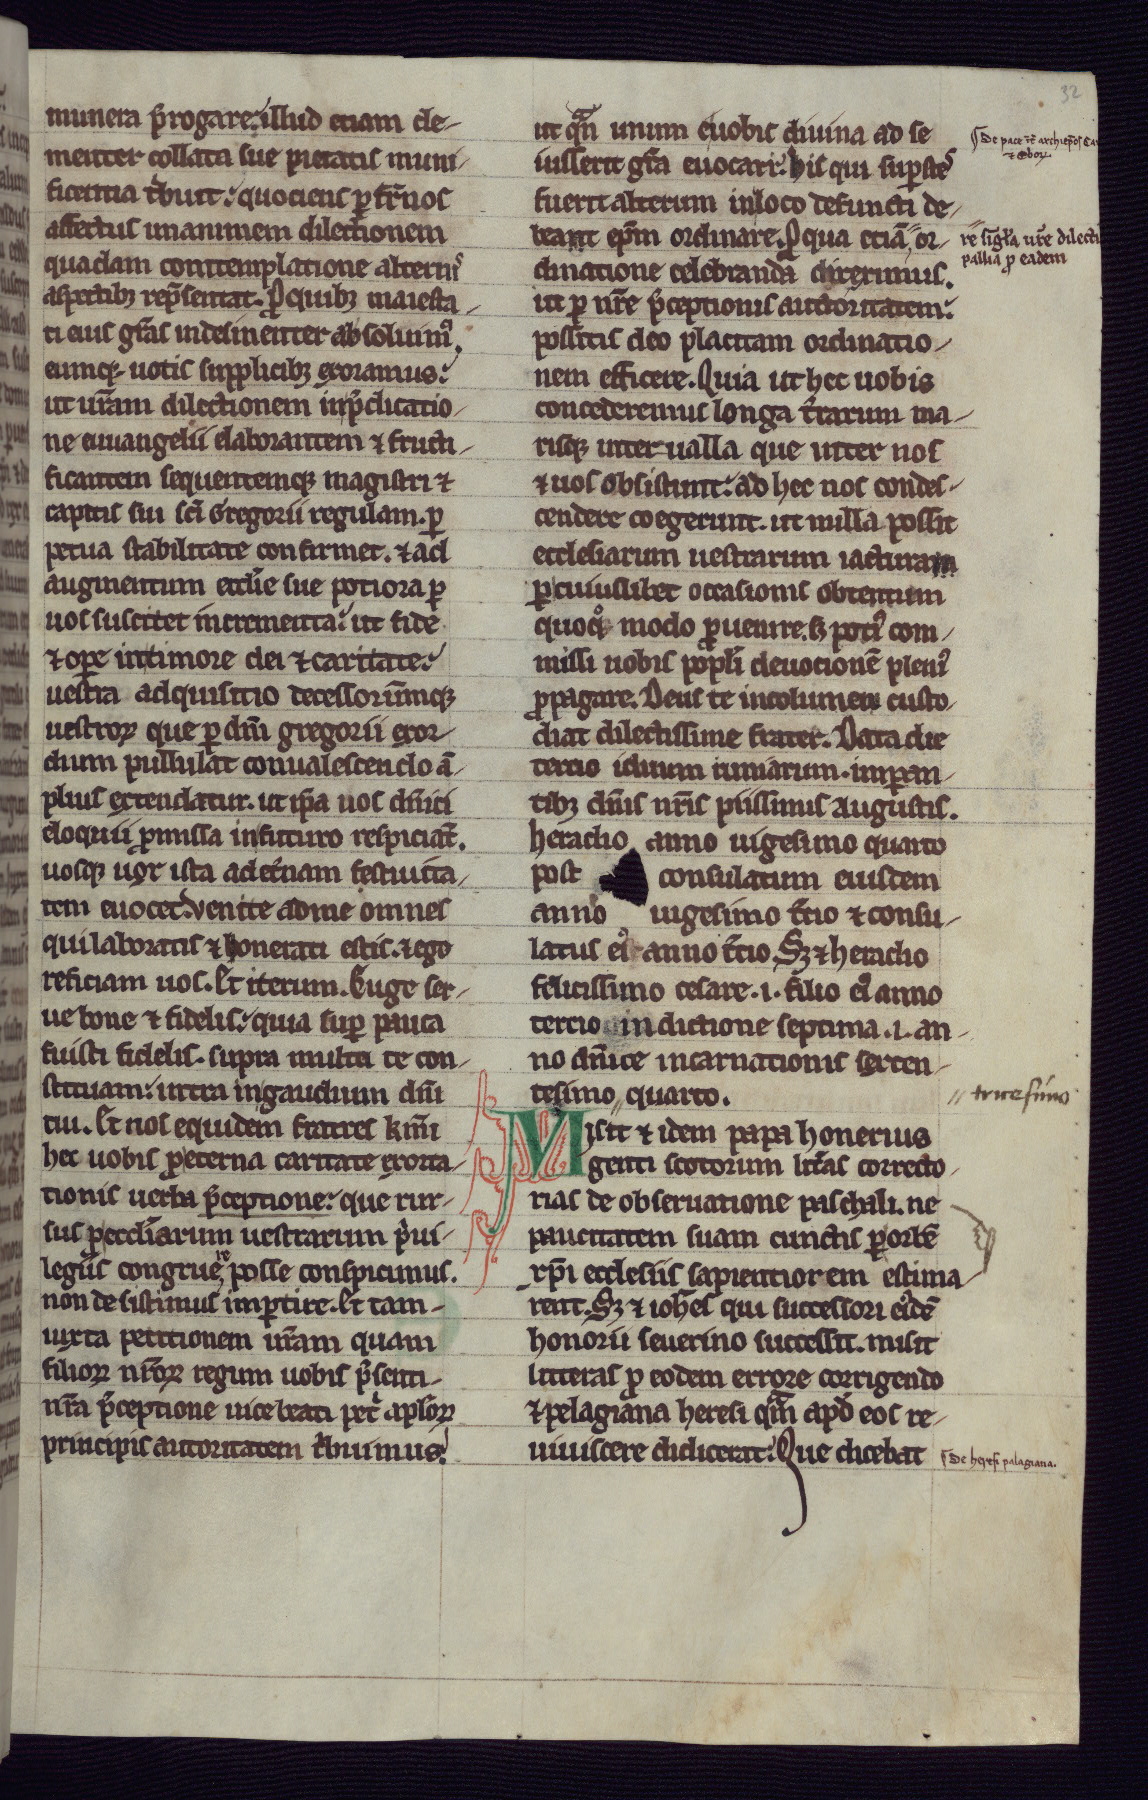 munera p̄rogare. illud etiam cle-
menter collata sue pietatis muni-
ficentia tͥbuit. quociens ꝑ fr̄nos
affectus unanimem dilectionem
quadam conttemplatione alternis
aspectibꝫ rep̄sentat. Pro quibꝫ maiesta-
ti eius gr̄as indesinenter absoluimꝰ.
eumqꝫ uotis supplicibꝫ exoramus.
ut ur̄am dilectionem inp̄dicatio-
ne euuangelii elaborantem ⁊ fructi-
ficantem sequentemqꝫ magistri ⁊
capitis sui sc̄i Gregorii regulam. ꝑ
petua stabilitate confirmet. ⁊ ad
augmentum eccl̄ie sue potiora ꝑ
uos suscitet incrementa. ut fide
⁊ oꝑe intimore dei ⁊ caritate.
uestra adquisitio decessorumqꝫ
uestroꝝ que ꝑ dn̄i gregorii exor-
dium pullulat conualescendo ā-
plius extendatur. ut ip̄a uos dn̄ici
eloquii ꝓmissa infuturo respiciāt.
uosqꝫ uox ista ad et̄nam festiuita-
tem euocet. Venite ad me omnes
qui laboratis ⁊ honerati estis. ⁊ ego
reficiam uos. Et iterum. Euge ser-
ue bone ⁊ fidelis. quia suꝑ pauca
fuisti fidelis. supra multa te con-
stituam. intra ingaudium dn̄i
tui. Et nos equidem fratres km̄i
hec uobis ꝓeterna caritate exorta-
tionis uerba p̄ceptione. que rur-
sus ꝑ eccl̄iarum uestrarum pͥui-
legiis congruere posse conspicimus.
non desistimus imꝑtire. Et tam-
iuxta petitionem ur̄am quam
filioꝝ nr̄oꝝ regum uobis p̄senti-
nr̄a p̄ceptione uice beati petͥ apl̄oꝝ
principis autoritatem tͥbuimus.
ut qn̄ unum euobis diuina ad se
iusserit gr̄a euocari. his qui suꝑstes
fuerit alterum inloco defuncti de-
beant ep̄m ordinare. Pro qua etiā „or-
dinatione celebranda direximus.
ut ꝑ nr̄e p̄ceptionis auctoritatem.
possitis deo placitam ordinatio-
nem efficere. Quia ut hec uobis
concederemus longa tr̄arum ma-
risqꝫ interualla que inter nos
⁊ uos obsistunt. ad hec nos condes-
cendere coegerunt. ut nulla possit
ecclesiarum uestrarum iacturam
ꝑ cuiuslibet occasionis obtentum
quoqͦ modo ꝓuenire. sꝫ potiꝰ com-
missi uobis popl̄i deuocionē pleniꝰ
ꝓpagare. Deus te incolumem custo-
diat dilectissime frater. Data die
tercio iduum iuniarum. imꝑan-
tibꝫ dn̄is nr̄is piissimis Augustis.
heraclio anno uigesimo quarto
post consulatum eiusdem
anno uigesimo tͥcio ⁊ consu-
latus eiꝰ anno tͥcio. Sꝫ ⁊ heraclio
felicissimo cesare .i. filio eiꝰ anno
tercio indictione septima .i. an-
no dn̄ice incarnationis sexcen-
tesimo „ quarto.
Misit ⁊ idem papa honerius
genti scotorum litr̄as correcto-
rias de obseruatione paschali. ne
paucitatem suam cunctis ꝑ orbē
xp̄i ecclesiis sapientiorem estima-
rent. Sꝫ ⁊ ioh̄es qui successori eiꝰdē
honorii seuerino successit. misit
litteras ꝓ eodem errore corrigendo
⁊ pelagiana heresi qm̄ apꝰd eos re-
uiuiscere didicerat. Que dicebat
32
¶ De pace
⁊ Ebor.
„re sigl̄a ur̄e dilecti
pallia ꝓ eadem
„ tricesimo
¶ De heresi palagiana.